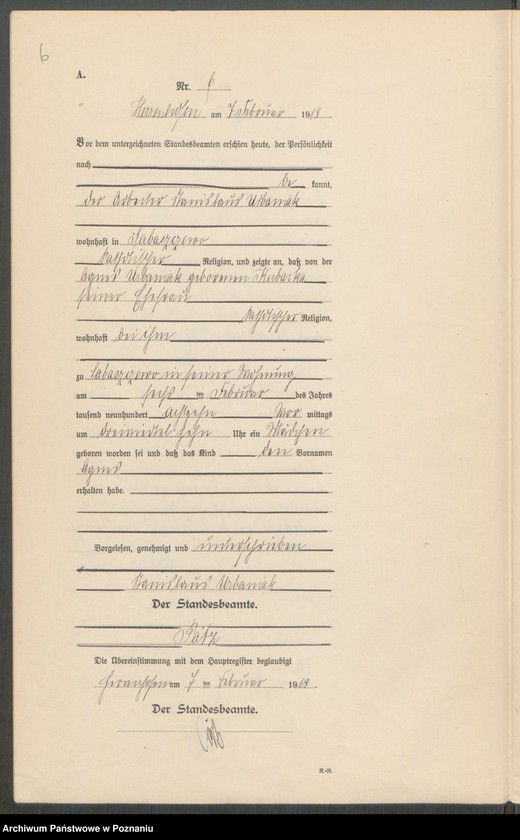 6
A.
Nr. 6
am 7 Februar 1918.
Vor dem unterzeichneten Standesbeamten erschien heute, der Persönlichkeit
nach
be kannt,
der Arbeiter Stanislaus Urbaniak
wohnhaft in
katholischer Religion, und zeigte an, daß von der
Agnes Urbaniak geborenen Kubacka
seiner Ehefrau
katholischer Religion,
wohnhaft bei ihm
zu in seiner Wohnung
am sechs ten Februar des Jahres
tausend neunhundert achtzehn Vor mittags
um dreiviertel zehn Uhr ein Mädchen
geboren worden sei und daß das Kind den Vornamen
Agnes
erhalten habe.
Vorgelesen, genehmigt und unterschrieben
Stanislaus Urbaniak
Der Standesbeamte.
Die Übereinstimmung mit dem Hauptregister beglaubigt
am 7 ten Februar 1918.
Der Standesbeamte.
R.-R.
Archiwum Państwowe w Poznaniu